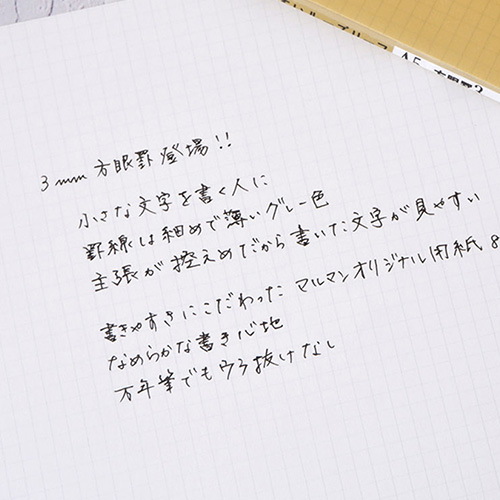 3mm 方眼罫登場!!
小さな文字を書く人に
罫線は細めで薄いグレー色
主張が控えめだから書いた文字が見やすい
書きやすさにこだわった マルマンオリジナル用紙 8
なめらかな書き心地
万年筆でもウラ抜けなし